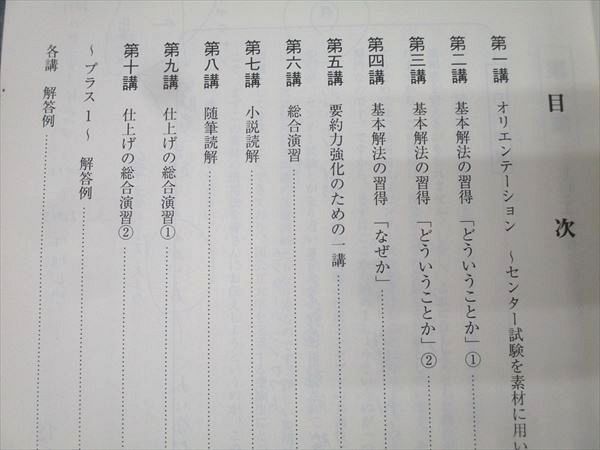 目次
第一講 オリエンテーション ～センター試験を素材に用い
第二講 基本解法の習得 「どういうことか」①
第三講 基本解法の習得 「どういうことか」②
第四講 基本解法の習得 「なぜか」
第五講 要約力強化のための一講
第六講 総合演習
第七講 小説読解
第八講 随筆読解
第九講 仕上げの総合演習①
第十講 仕上げの総合演習②
～プラス1～ 解答例
各講 解答例